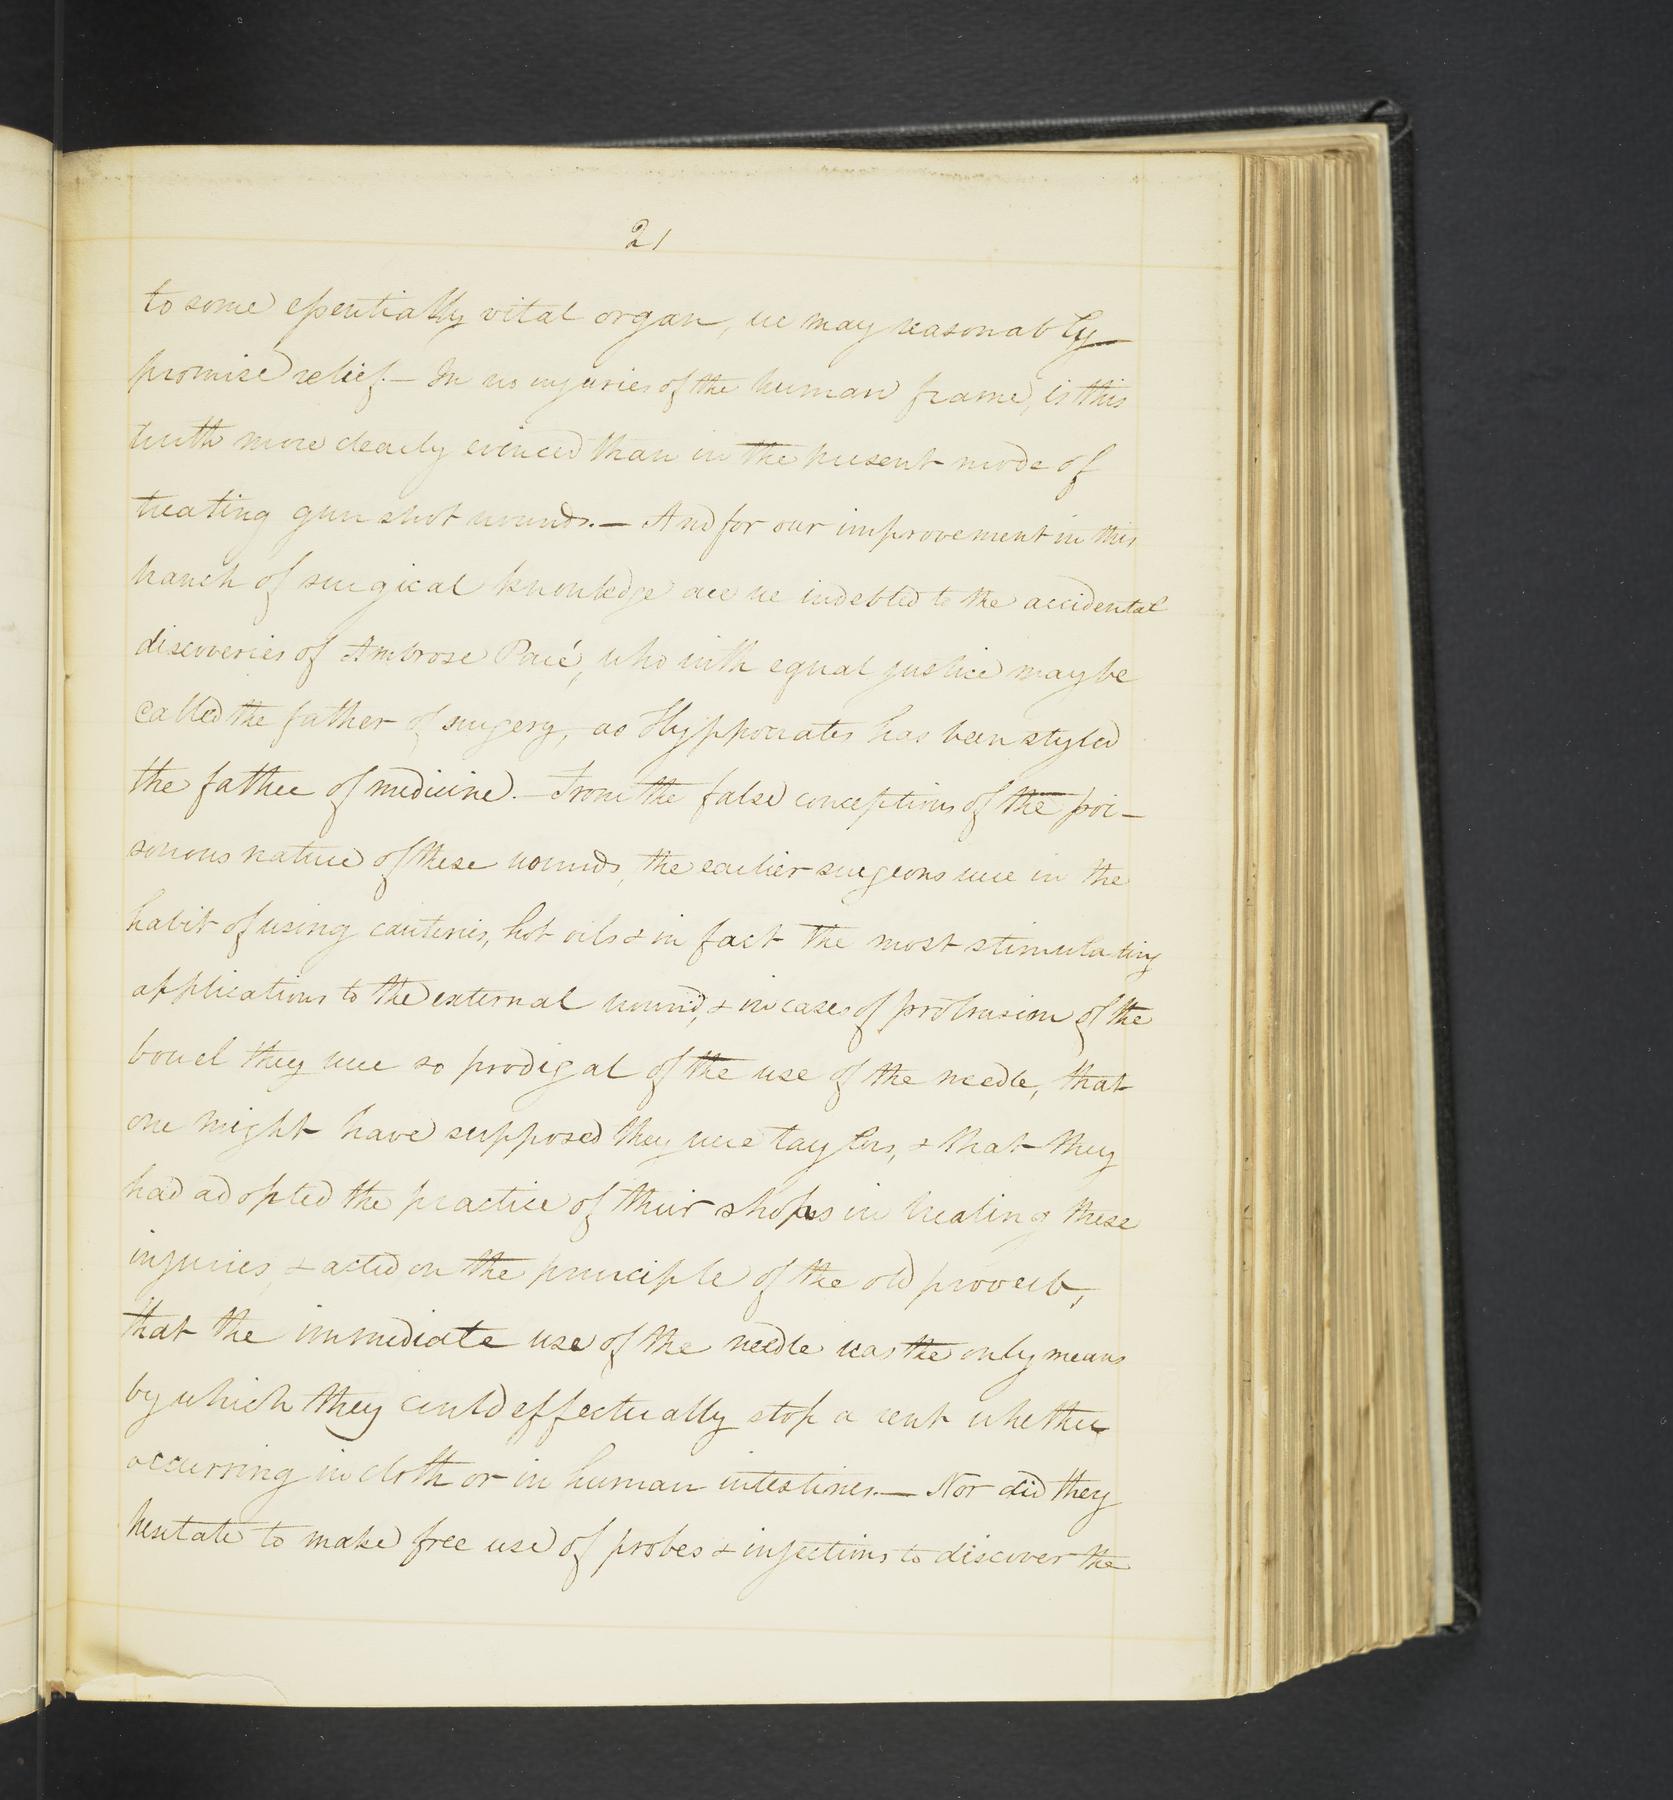 21
to some essentially vital organ, we may reasonably
promise relief. — In no injuries of the human frame, is this
truth more clearly evinced than in the present mode of
treating gun shot wounds. — And for our improvement in this
branch of surgical knowledge are we indebted to the accidental
discoveries of Ambrose Paré, who with equal justice may be
called the father of surgery, as Hyppocrates has been styled
the father of medicine. — From the false conceptions of the poi-
sonous nature of these wounds, the earlier surgeons were in the
habit of using cauteries, hot oils & in fact the most stimulating
applications to the external wound, & in cases of protrusion of the
bowel they were so prodigal of the use of the needle, that
one might have supposed they were taylors, & that they
had adopted the practice of their shops in healing these
injuries, & acted on the principle of the old proverb,
that the immediate use of the needle was the only means
by which they could effectually stop a rent whether
occurring in cloth or in human intestines. — Nor did they
hesitate to make free use of probes & injections to discover the